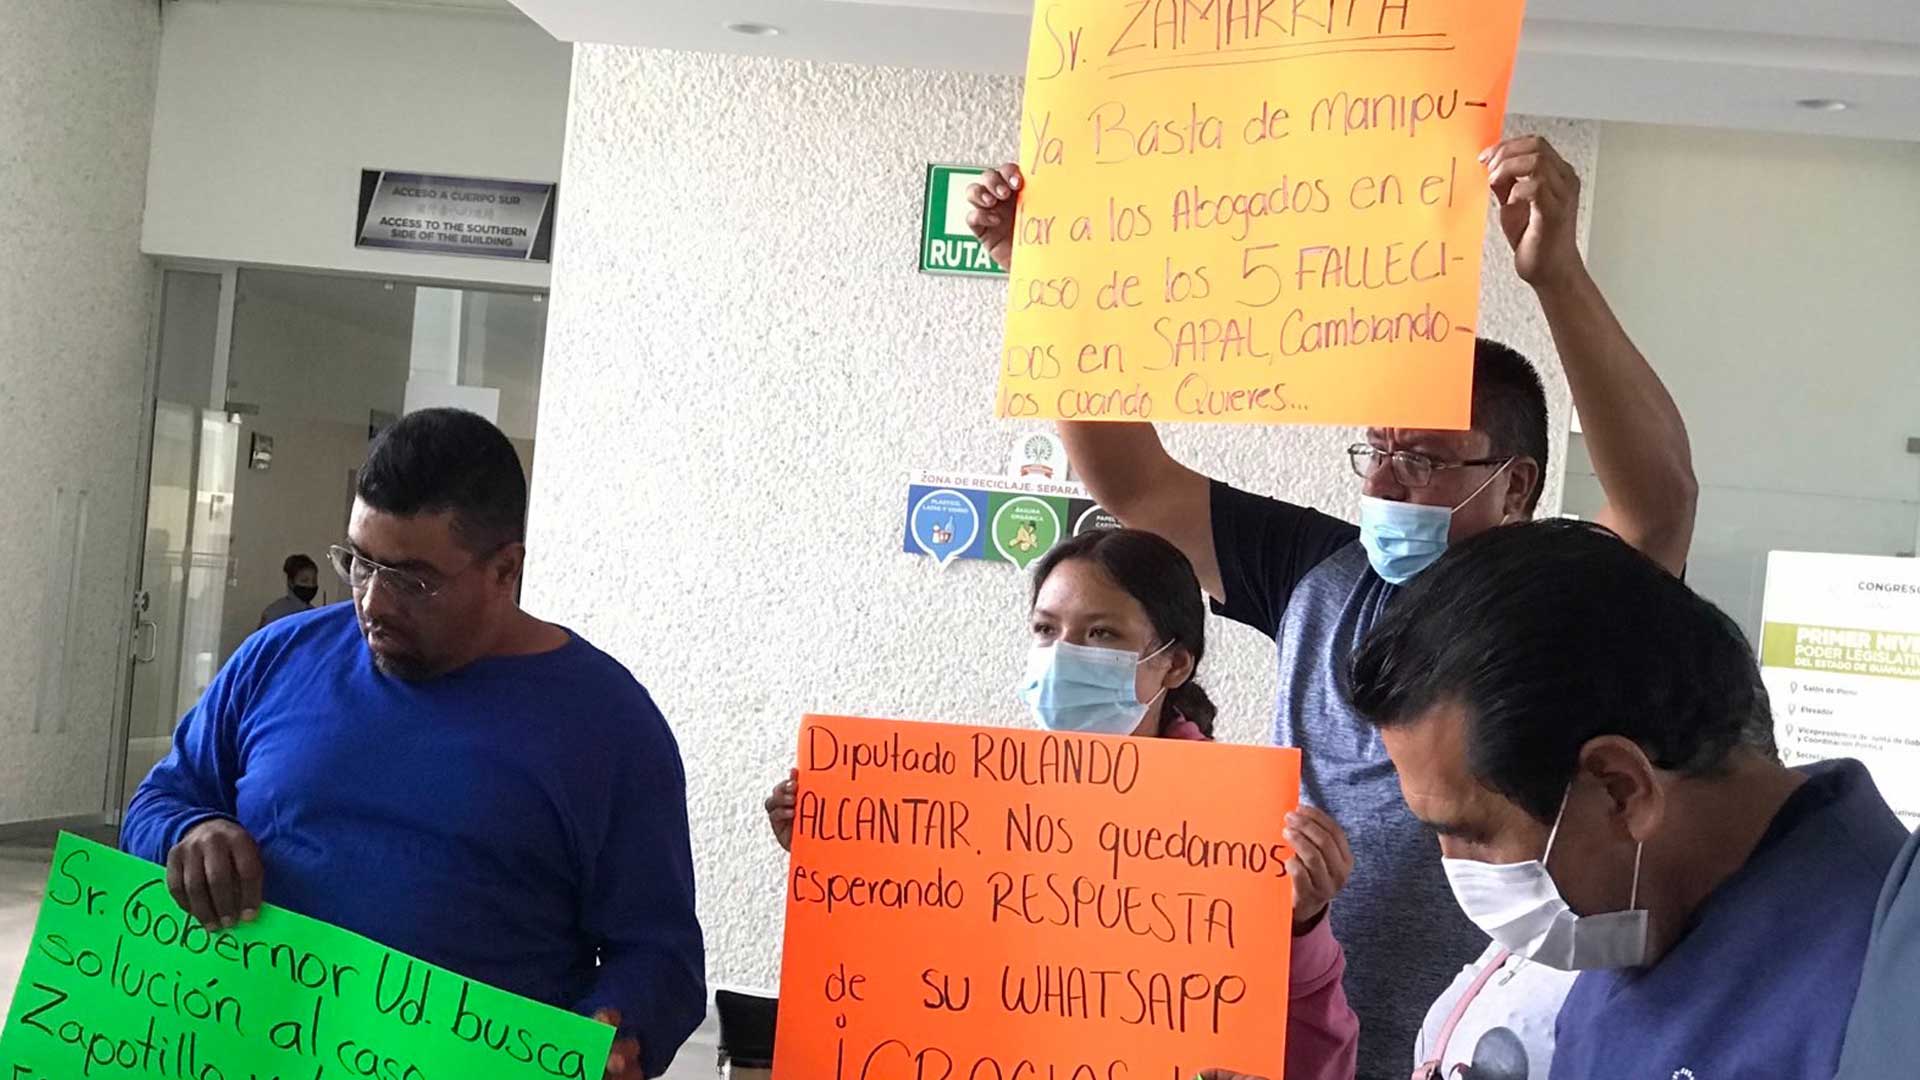 Sr. ZAMARRIPA
Ya Basta de manipu-
lar a los Abogados en el
caso de los 5 FALLECI-
DOS en SAPAL, Cambiando-
los cuando Quieres...
ACCESO A CUERPO SUR
ACCESS TO THE SOUTHERN
SIDE OF THE BUILDING
RUTA
ZONA DE RECICLAJE. SEPARA
PLASTICO,
LATAS Y VIDRIO
BASURA
ORGÁNICA
PAPEL
CARTÓN
Diputado ROLANDO
ALCANTAR. NOS quedamos
esperando RESPUESTA
de SU WHATSAPP
¡GRACIAS!
Sr. Gobernor Ud. busca
solución al caso
Zapotillo
CONGRESO
PRIMER NIVEL
PODER LEGISLATIVO
DEL ESTADO DE GUANAJUATO
Salón de Pleno
Elevador
Vicepresidencia de Junta de Gob
y Coordinación Política